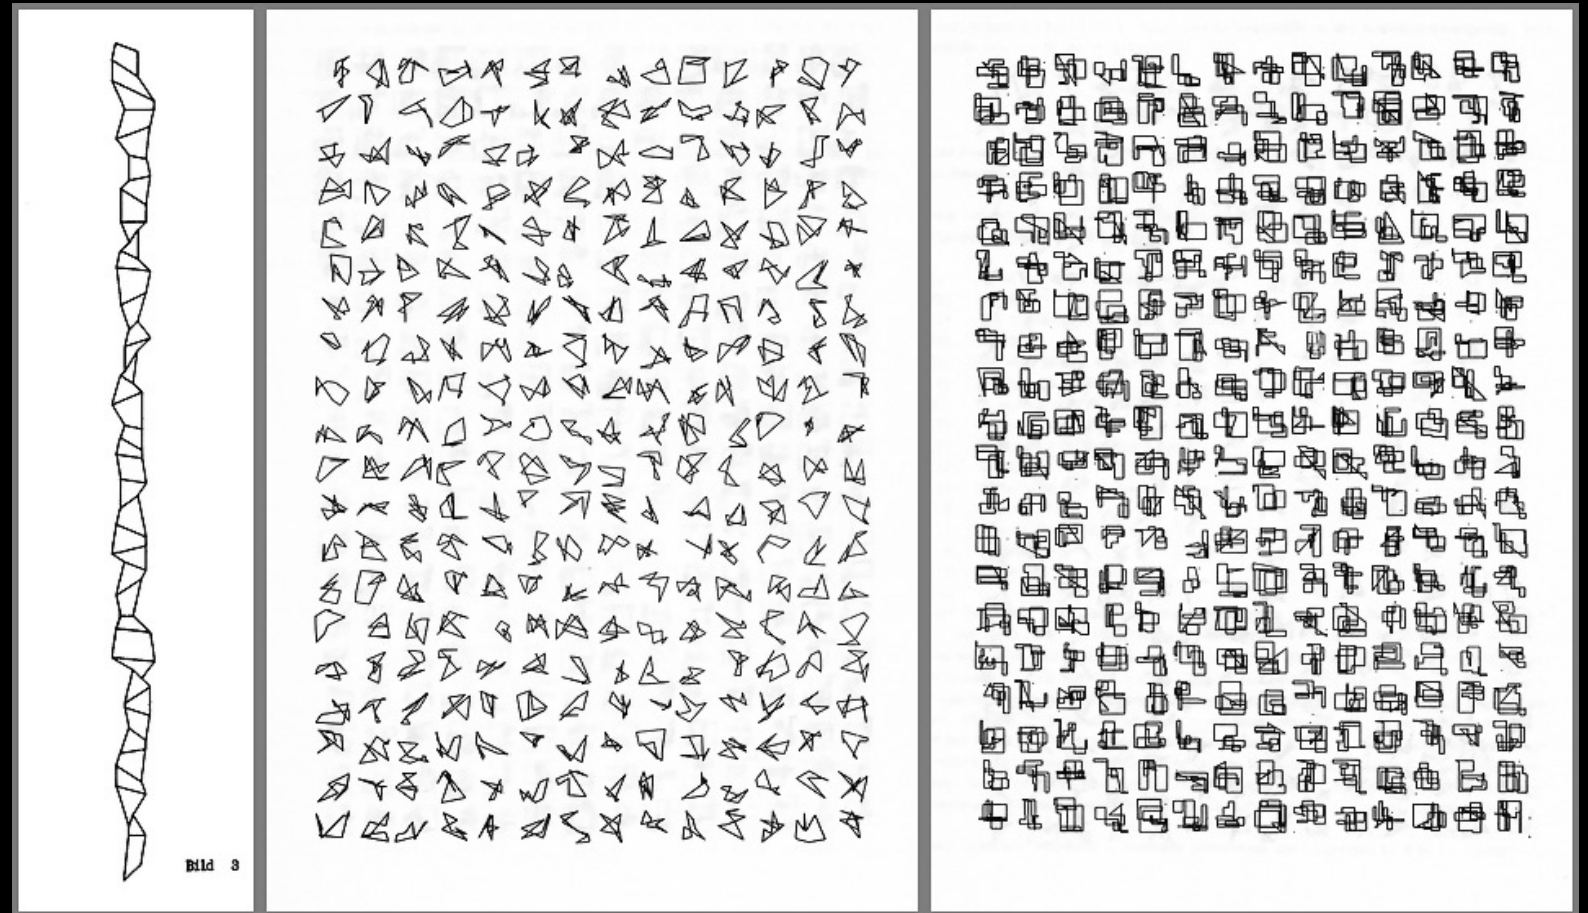 Bild 3